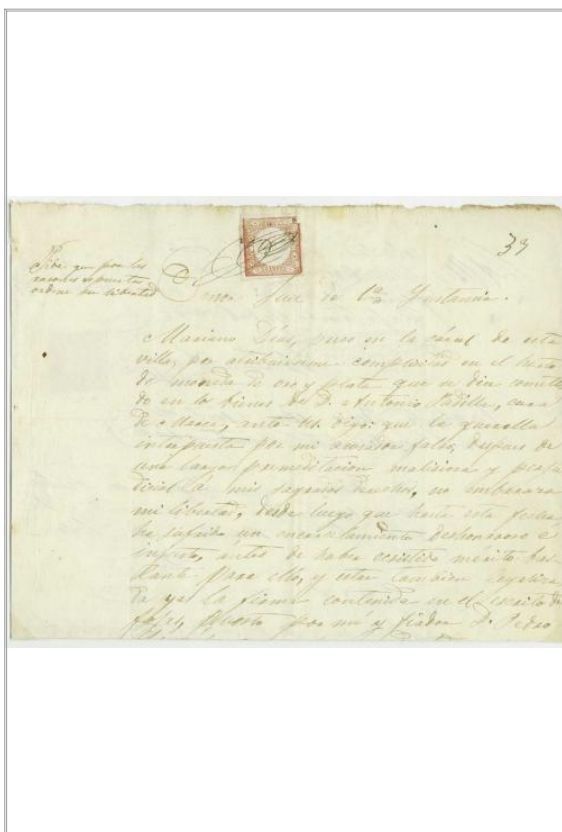 39
Pide que por las
razones expuestas
ordene su libertad
Señor Juez de 1ª Instancia.
Mariano Días, preso en la cárcel de esta
villa, por atribuirseme complicidad en el hurto
de moneda de oro y plata que se dice cometi
do en los bienes de D. Antonio Padilla, cura
de, ante Ud. digo: que la querella
interpuesta por mi acusador falso, despues de
una larga premeditacion maliciosa y perju
dicial á mis sagrados derechos, no embaraza
mi libertad, desde luego que hasta esta fecha
he sufrido un encarcelamiento deshonroso e
injusto, antes de haber ecsistido mérito bas
tante para ello, y estar tambien legaliza
da ya la firma contenida en el escrito de
por mi y fiador D. Pedro